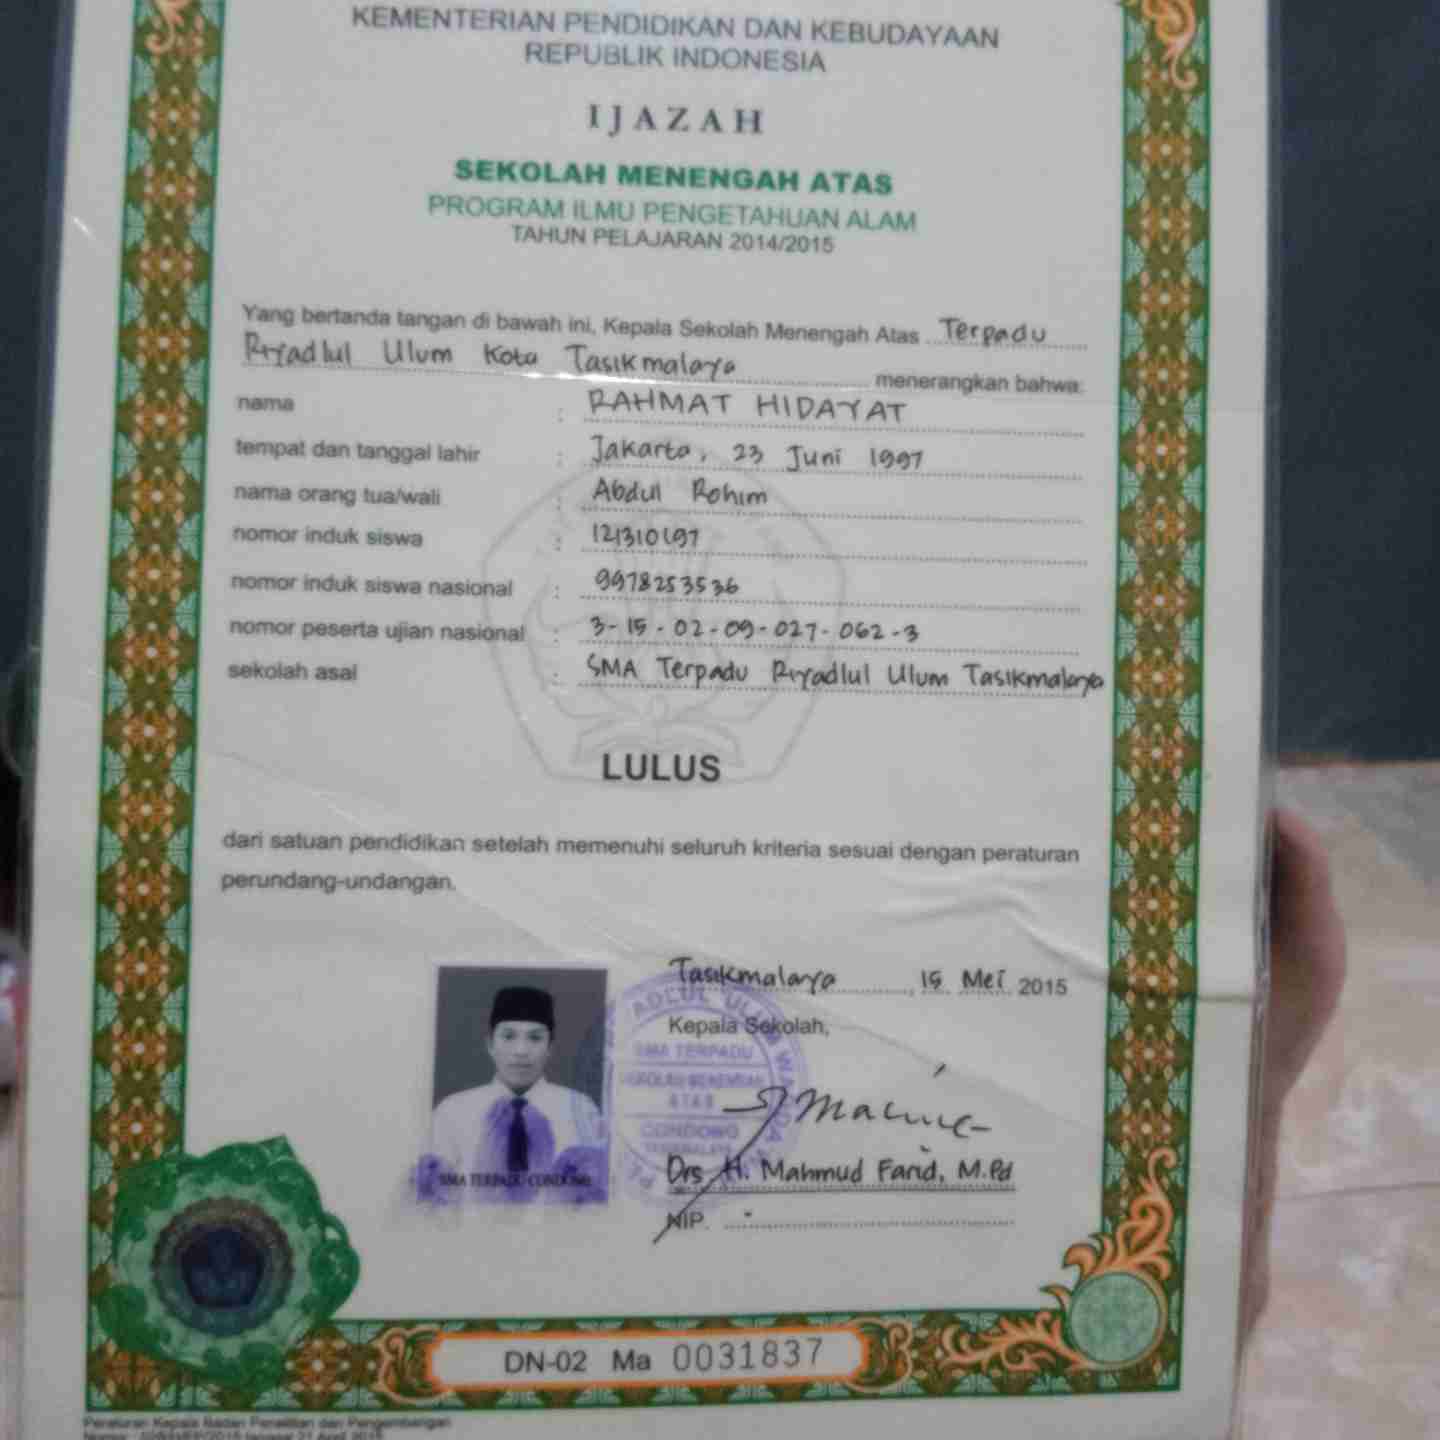 KEMENTERIAN PENDIDIKAN DAN KEBUDAYAAN
REPUBLIK INDONESIA
IJAZAH
SEKOLAH MENENGAH ATAS
PROGRAM ILMU PENGETAHUAN ALAM
TAHUN PELAJARAN 2014/2015
Yang bertanda tangan di bawah ini, Kepala Sekolah Menengah Atas Terpadu
Riyadlul Ulum Kota Tasikmalaya menerangkan bahwa:
nama : RAHMAT HIDAYAT
tempat dan tanggal lahir : Jakarta, 23 Juni 1997
nama orang tua/wali : Abdul Rohim
nomor induk siswa : 121310197
nomor induk siswa nasional : 9978253536
nomor peserta ujian nasional : 3-15-02-09-027-062-3
sekolah asal : SMA Terpadu Riyadlul Ulum Tasikmalaya
LULUS
dari satuan pendidikan setelah memenuhi seluruh kriteria sesuai dengan peraturan
perundang-undangan.
Tasikmalaya, 15 Mei 2015
Kepala Sekolah,
ADLUL ULUM WADDA
SMA TERPADU
SEKOLAH MENENGAH
ATAS
CONDONG
SMA TERPADU CONDONG
Drs. H. Mahmud Farid, M.Pd
NIP. -
DN-02 Ma 0031837
Peraturan Kepala Badan Penelitian dan Pengembangan